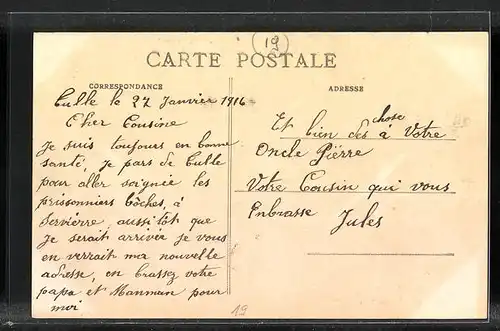 19
CARTE POSTALE
CORRESPONDANCE
Tulle le 27 Janvier 1916
Cher Cousine
Je suis toujours en bonne
santé, je pars de Tulle
pour aller soignée les
prisonniers bôches, à
Servierre, aussitôt que
je serait arrivée je vous
en verrait ma nouvelle
adresse, en brassez votre
papa et Manman pour
moi
ADRESSE
Et bien des chose à Votre
Oncle Piërre
Votre Cousin qui vous
Enbrasse Jules
19